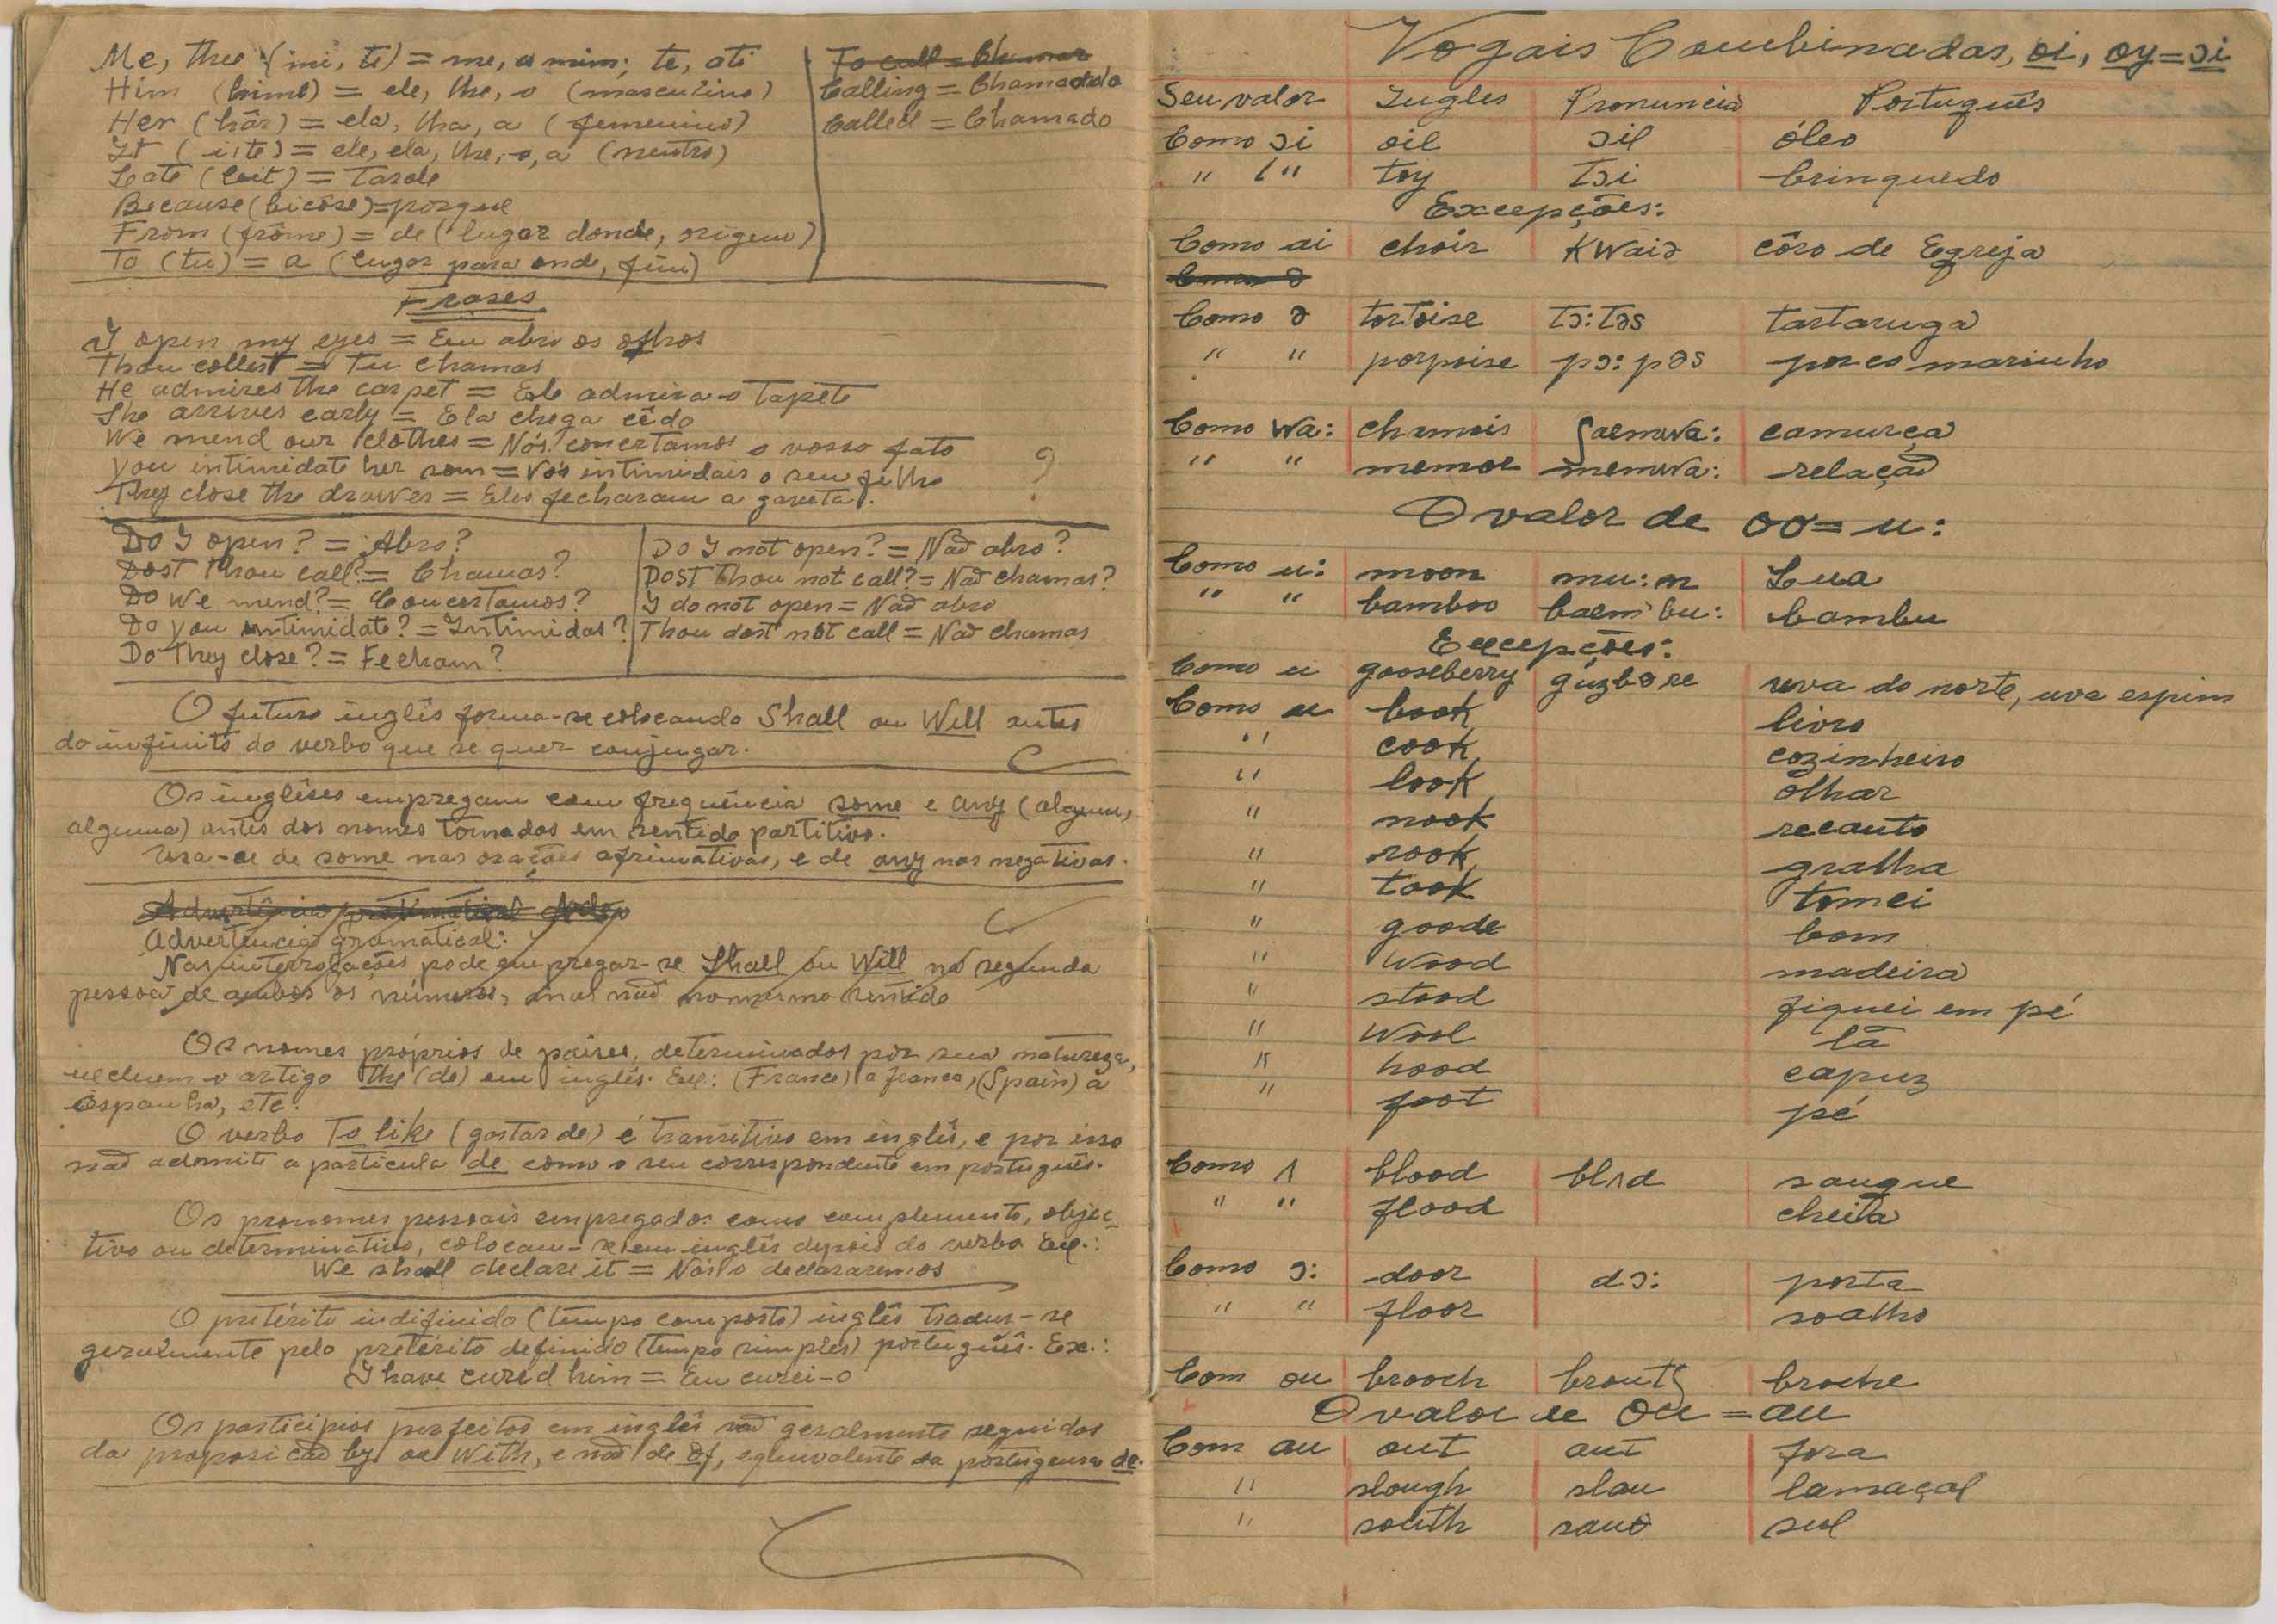 Me, thee (mi, ti) = me, a mim; te, ati
Him (hime) = ele, lhe, o (masculino)
Her (hâr) = ela, lha, a (femenino)
It (iite) = ele, ela, lhe, o, a (neutro)
Late (leit) = Tarde
Because (bicóse) = porque
From (frôme) = de (lugar donde, origem)
To (tu) = a (lugar para onde, fim)
To call = Chamar
Calling = Chamando
Called = Chamado
Frases
I open my eyes = Eu abro os olhos
Thou callest = Tu chamas
He admires the carpet = Ele admira o Tapete
She arrives early = Ela chega cêdo
We mend our clothes = Nós concertamos o vosso fato
You intimidate her som = Vós intimidais o seu filho ?
They close the drawer = Eles fecharam a gaveta.
Do I open? = Abro?
Dost Thou call? = Chamas?
Do We mend? = Concertamos?
Do you intimidate? = Intimidas?
Do They close? = Fecham?
Do I not open? = Não abro?
Dost Thou not call? = Não chamas?
I do not open = Não abro
Thou dost not call = Não chamas
O futuro inglês forma-se colocando Shall ou Will antes
do infinito do verbo que se quer conjugar.
Os inglêses empregam com frequência some e any (algum,
alguma) antes dos nomes tomados em sentido partitivo.
Usa-se de some nas orações afrimativas, e de any nas negativas.
Advertência gramatical
Advertencia gramatical:
Nas interrogações pode empregar-se Shall ou Will na segunda
pessoa de ambos os números, mas não no mesmo sentido
Os nomes próprios de paises, determinados por sua natureza,
excluem o artigo the (de) em inglês. Ex: (France) a frança, (Spain) a
espanha, etc.
O verbo To like (gostar de) é transitivo em inglês, e por isso
não admite a particula de como o seu correspondente em português.
Os pronomes pessoais empregados como complemento, objec-
tivo ou determinativo, colocam-se em inglês depois do verbo Ex.:
We shall declare it = Nós o declararemos
O pretérito indifinido (tempo composto) inglês traduz-se
geralmente pelo pretérito definido (tempo simples) português. Ex.:
I have cured him = Eu curei-o
Os participios perfeitos em inglês são geralmente seguidos
da proposicão by ou With, e não de Of, equivalente da portuguesa de.
Vogais Combinadas, oi, oy = ɔi
Seu valor Ingles Pronuncia Português
Como ɔi oil ɔil óleo
" " toy Tɔi brinquedo
Excepções:
Como ai choir Kwaiə côro de Egreja
Como ə
Como ə tortoise Tɔ:Təs tartaruga
" " porpoise pɔ:pəs porco marinho
Como wa: chamois ʃaemwa: camurça
" " memoe memwa: relação
O valor de oo = u:
Como u: moon mu:n Lua
" " bamboo baem'bu: bambu
Excepções:
Como u gooseberry guzbəre uva do norte, uva espim
Como u book livro
" cook cozinheiro
" look ôlhar
" nook recanto
" rook gralha
" took tomei
" goode bom
" Wood madeira
" stood fiquei em pé
" Wool lã
" hood capuz
" foot pé
Como ʌ blood blʌd sangue
" " flood cheita
Como ɔ: door dɔ: porta
" " floor soalho
Com ou brooch broutʃ broche
O valor de Ou = au
Com au out aut fora
" slough slau lamaçal
" south sauθ sul